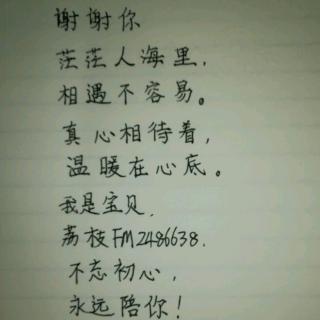 谢谢你
茫茫人海里,
相遇不容易。
真心相待着,
温暖在心底。
我是宝贝.
荔枝FM2486638.
不忘初心,
永远陪你!